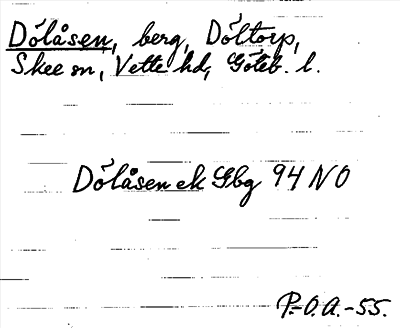 Dólåsen, berg, Dóltorp,
Skee sn, Vette hd, Göteb. l.
Dólåsen ek Gbg 94 NO
P.-O.A.-55.